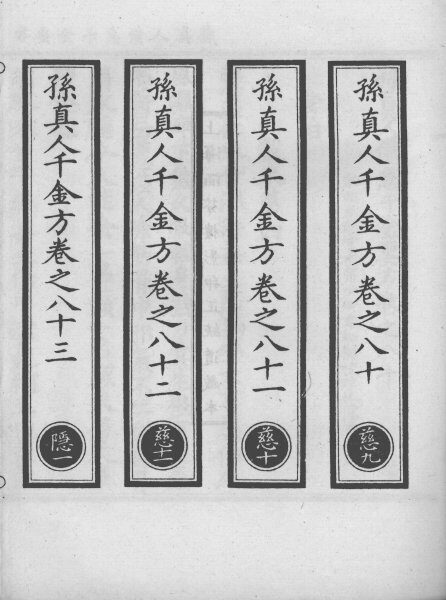 孫真人千金方卷之八十
慈九
孫真人千金方卷之八十一
慈十
孫真人千金方卷之八十二
慈十一
孫真人千金方卷之八十三
隱一